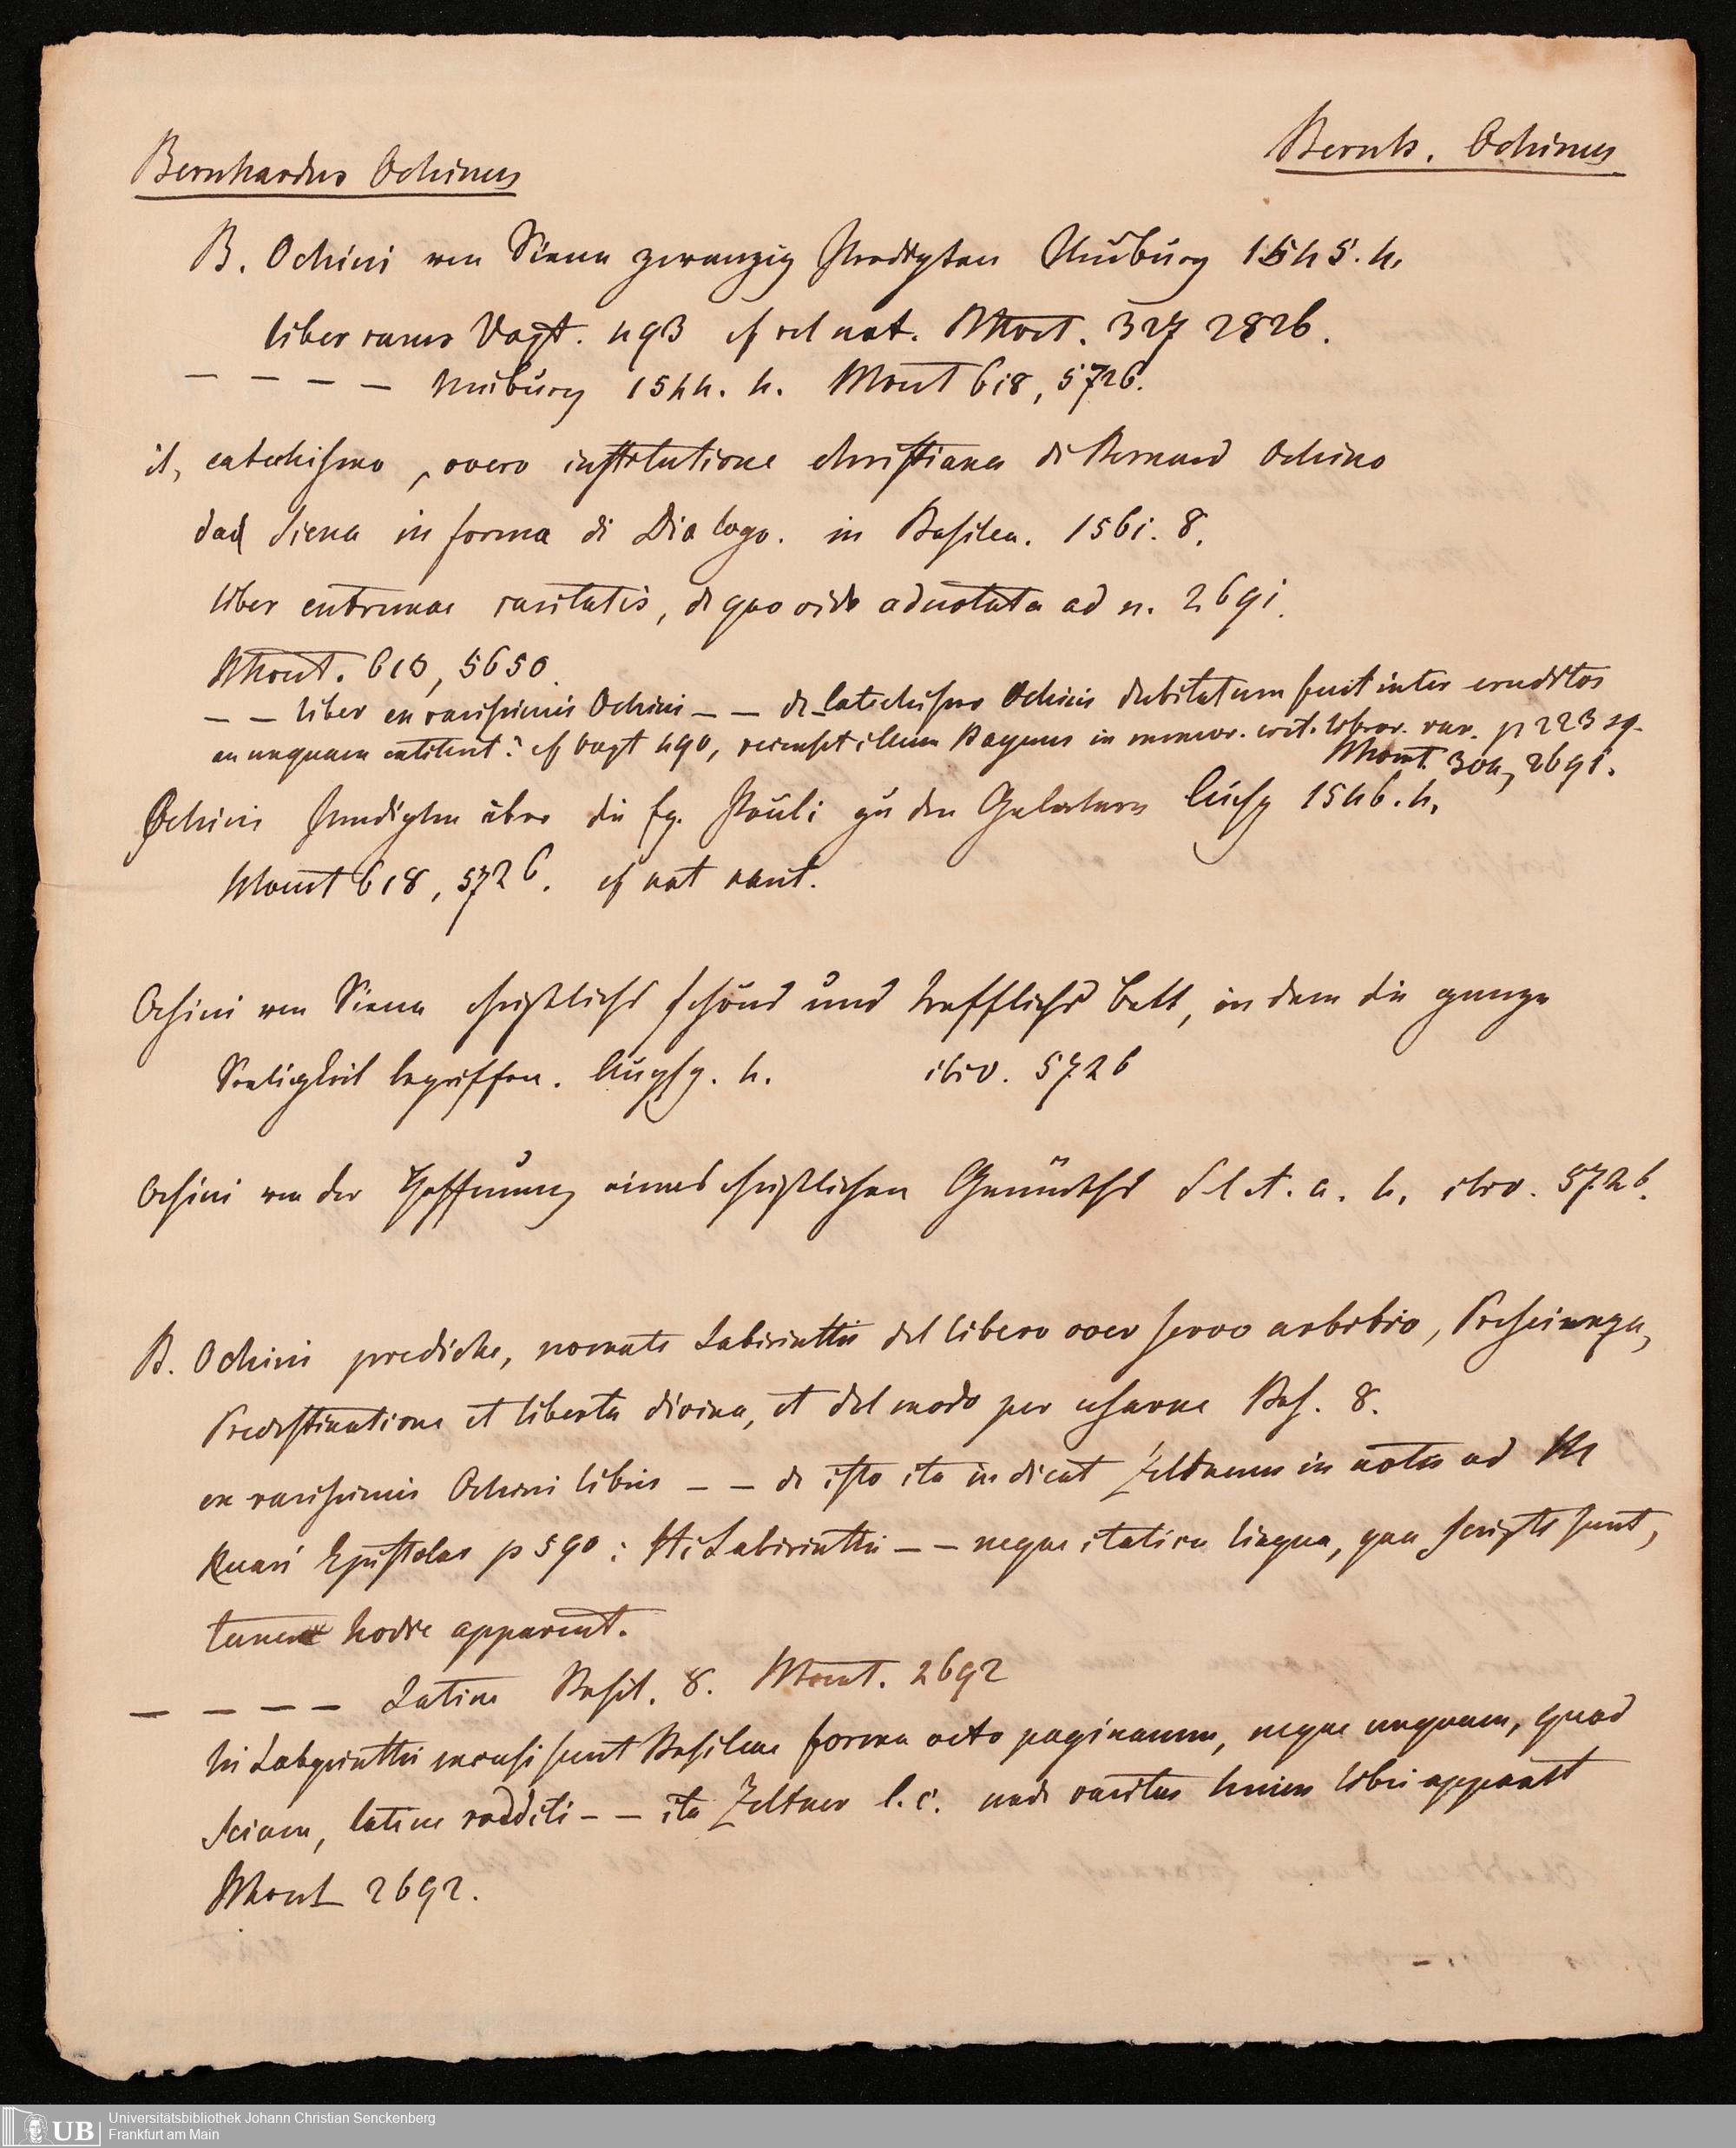 Bernhardus Ochinus
Bernh. Ochinus
B. Ochini von Siena zwanzig Predigten Neuburg 1545. 4.
liber rarus Vogt. 493 cf rel not. Mort. 327 2826.
– – – – Neuburg 1544. 4. Mort 618, 5726.
il, catechismo, overo institutione christiana di Bernard Ochino
dad Siena in forma di Dialogo. in Basilea. 1561. 8.
liber extremae raritatis, de quo vide adnotata ad n. 2691.
5650.
– – liber ex rarissimis Ochini – – de Catechismo Ochini dubitatum fuit inter eruditos
an unquam extiterit? cf Vogt 490, recenset illum in memor. crit. libror. rar. p 223 sq.
304, 2691.
Ochini Predigten über die Ep. Pauli zu den Galatern Augsp 1546. 4.
618, 5726. cf not
Ochini von Siena christlichs schöns und trefflichs Bett, in dem die ganze
Seeligkeit begriffen. Augsp. 4. ibid. 5726
Ochini von der Hoffnung eines christlichen Gemüeths S l et. a. 4. ibid. 5726.
B. Ochini prediche, nomate Labirinthi del libero over servo arbitrio, Prescienza,
Predestinatione et liberta divina, et del modo per usarne Bas. 8.
ex rarissimis Ochini libris – – de isto ita indicat Zeltnerus in notis ad
Ruari Epistolas p 590: Hi Labirinthi – – neque italica lingua, qua scripti sunt,
tamen hodie apparent.
– – – – Latine Basil. 8. 2692
hi Labyrinthi excusi sunt Basileae forma octo paginarum, neque unquam, quod
sciam, latine redditi – – ita Zeltner l. c. unde raritas hujus libri apparet
2692.
UB
Universitätsbibliothek Johann Christian Senckenberg
Frankfurt am Main